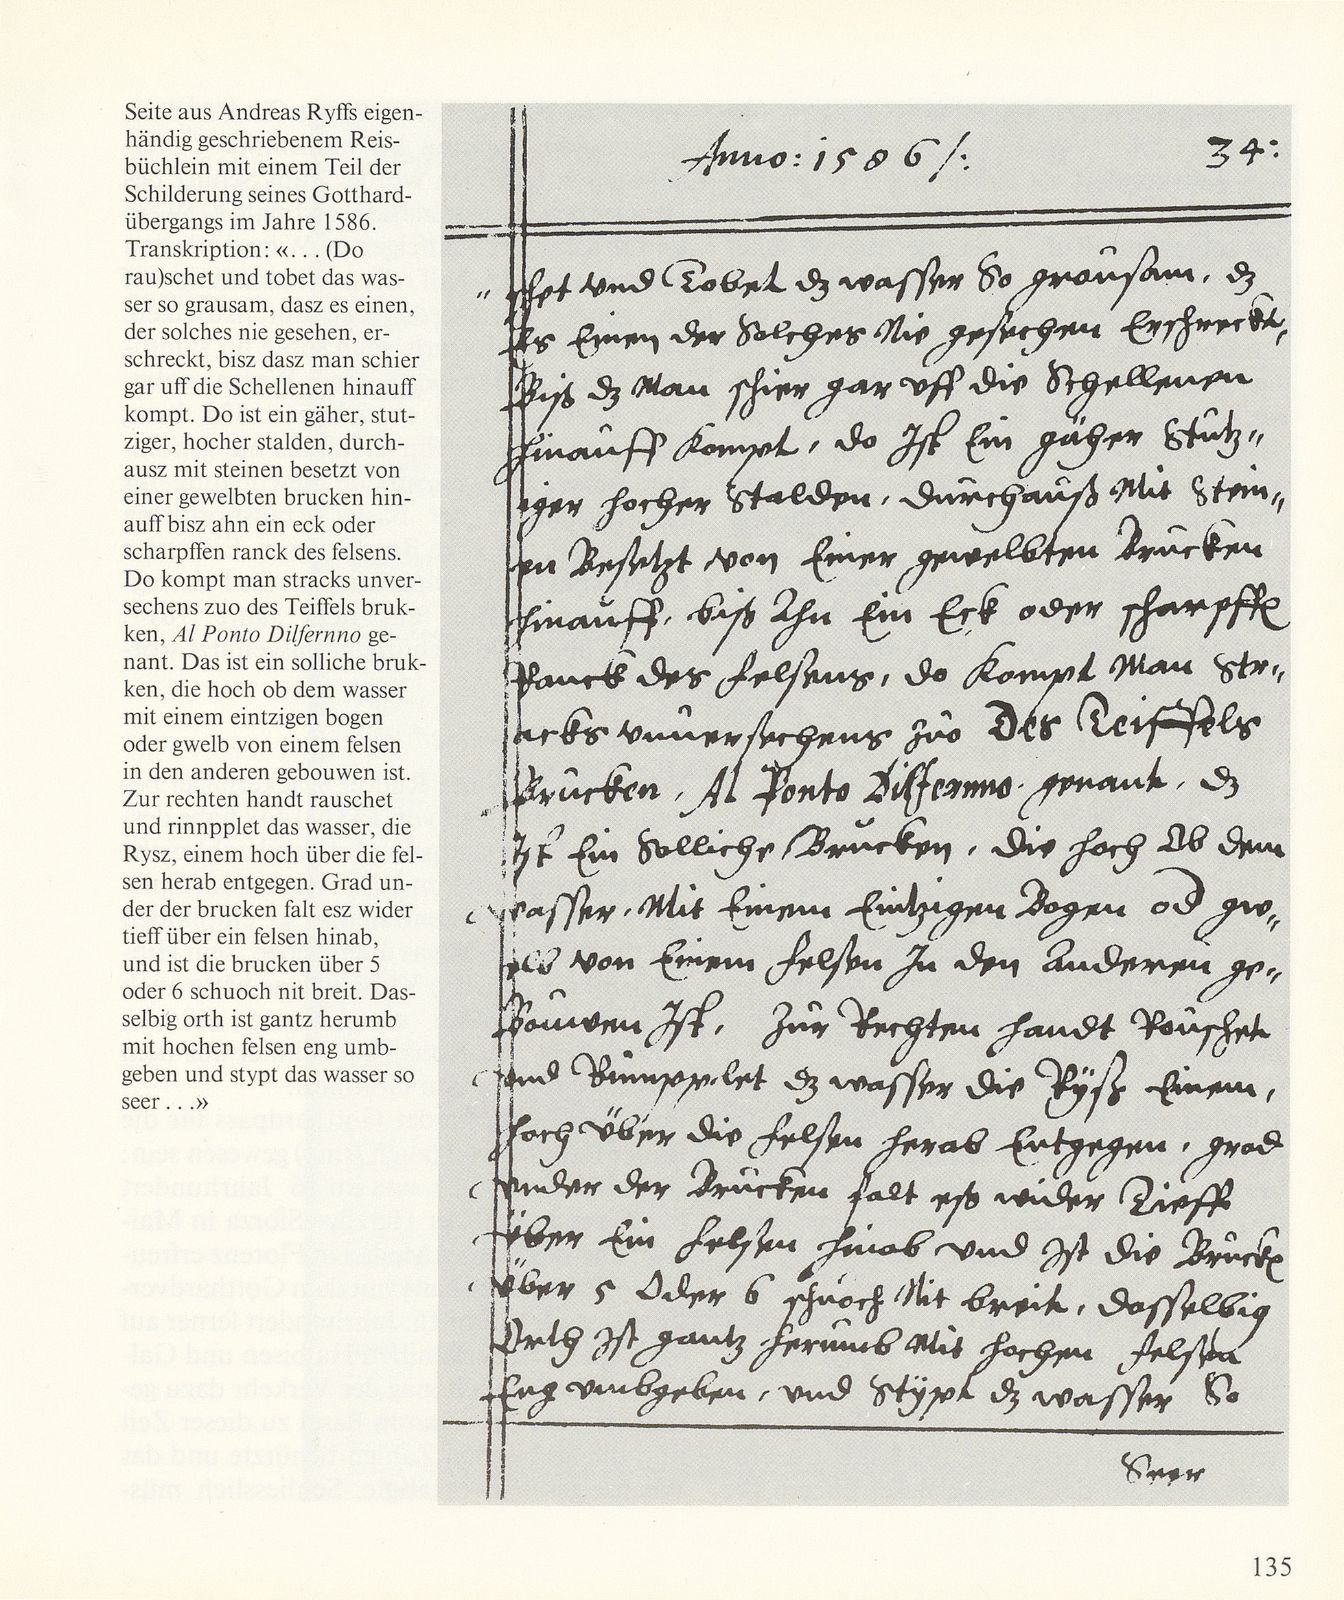 Seite aus Andreas Ryffs eigen-
händig geschriebenem Reis-
büchlein mit einem Teil der
Schilderung seines Gotthard-
übergangs im Jahre 1586.
Transkription: «. . . (Do
rau)schet und tobet das was-
ser so grausam, dasz es einen,
der solches nie gesehen, er-
schreckt, bisz dasz man schier
gar uff die Schellenen hinauff
kompt. Do ist ein gäher, stut-
ziger, hocher stalden, durch-
ausz mit steinen besetzt von
einer gewelbten brucken hin-
auff bisz ahn ein eck oder
scharpffen ranck des felsens.
Do kompt man stracks unver-
sechens zuo des Teiffels bruk-
ken, Al Ponto Dilfernno ge-
nant. Das ist ein solliche bruk-
ken, die hoch ob dem wasser
mit einem eintzigen bogen
oder gwelb von einem felsen
in den anderen gebouwen ist.
Zur rechten handt rauschet
und rinnpplet das wasser, die
Rysz, einem hoch über die fel-
sen herab entgegen. Grad un-
der der brucken falt esz wider
tieff über ein felsen hinab,
und ist die brucken über 5
oder 6 schuoch nit breit. Das-
selbig orth ist gantz herumb
mit hochen felsen eng umb-
geben und stypt das wasser so
seer . . .»
Anno: 1586 /: 34:
schet vnd Tobet dz wasser So grousam, dz
Es Einen der Solches Nie gesechen Erschreckt,
Biß dz Man schier gar vff die Schellenen
hinauff Kompt, do Ist Ein gäher Stutz-
iger hocher Stalden, durchauß Mit Stein-
en Besetzt von Einer gewelbten Brucken
hinauff, biß Ahn Ein Eck oder scharpffen
Ranck des felsens, do Kompt Man Str-
acks vnuersechens zuo Des Teiffels
Brucken, Al Ponto Dilfernno genant, dz
Ist Ein Solliche Brucken, die hoch Ob dem
wasser, Mit Einem Eintzigen Bogen od gw-
elb von Einem felsen In den Anderen ge-
Bouwen Ist, Zur Rechten handt Rouschet
vnd Rumpplet dz wasser die Ryß Einem,
hoch über die felsen herab Entgegen, grad
vnder der Brucken falt eß wider Tieff
über Ein felsen hinab vnd Ist die Brucken
über 5 Oder 6 schuoch Nit breit, dasselbig
Orth Ist gantz herumb Mit hochen felsen
Eng vmbgeben, vnd Stypt dz wasser So
Seer
135